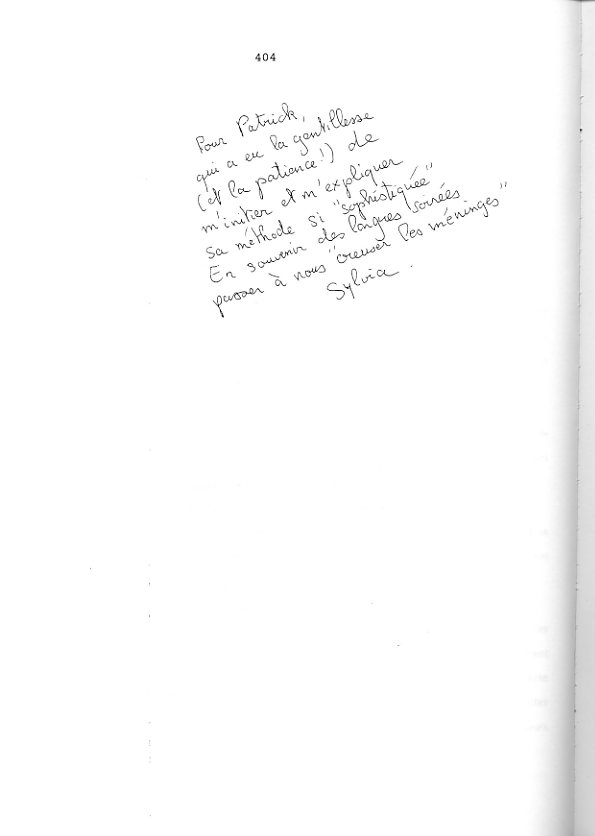 404
Pour Patrick,
qui a eu la gentillesse
(et la patience!) de
m'initier et m'expliquer
sa méthode si "sophistiquée"
En souvenir des longues soirées
passer à nous "creuser les méninges"
Sylvia.